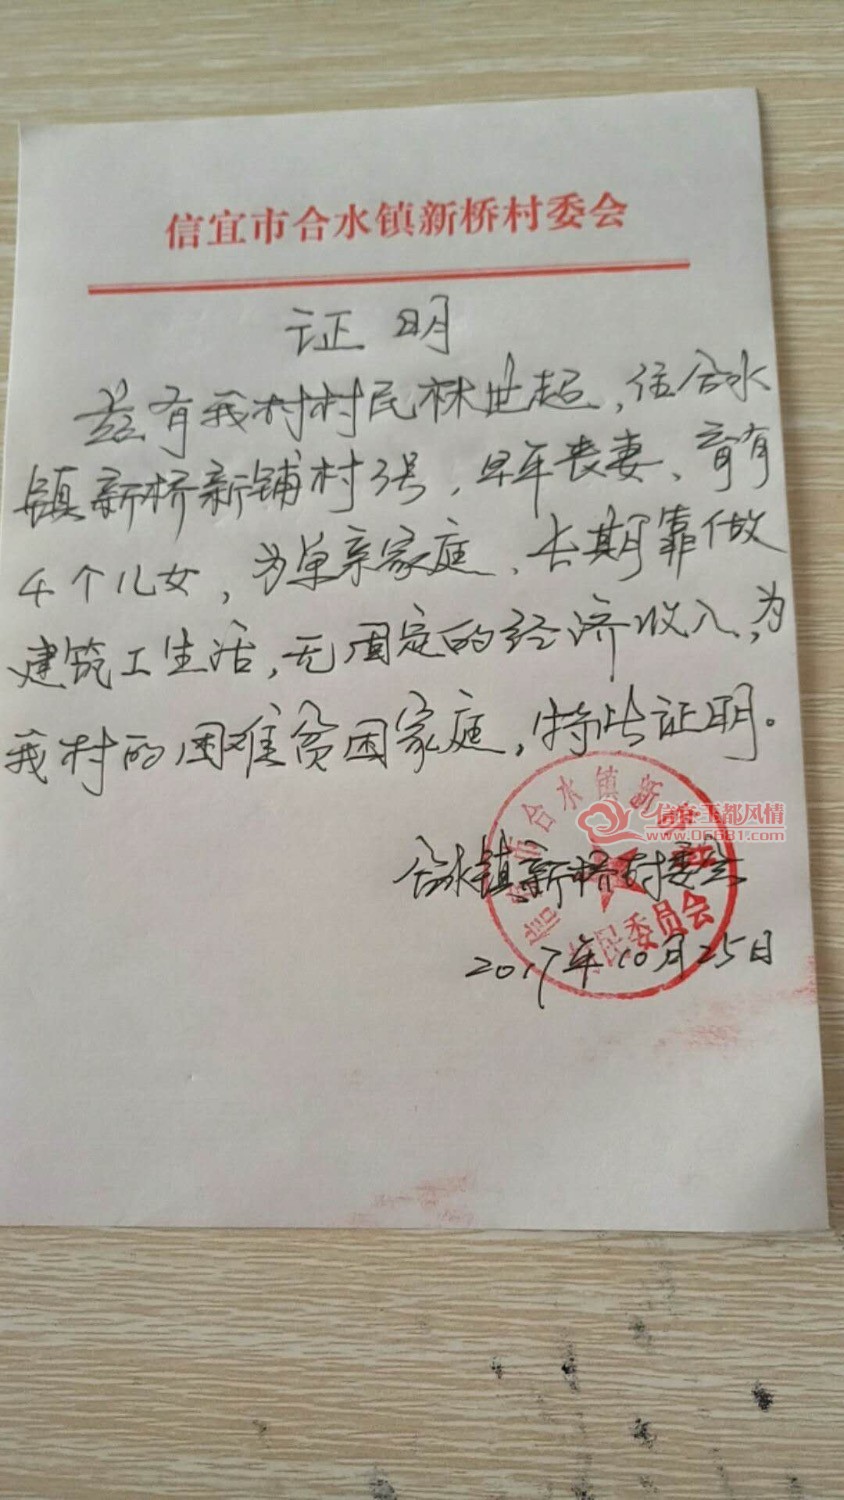 信宜市合水镇新桥村委会
证明
兹有我村村民林世超，住合水
镇新桥新铺村3号，早年丧妻、育有
4个儿女，为单亲家庭、长期靠做
建筑工生活，无固定的经济收入，为
我村的困难贫困家庭，特此证明。
信宜玉都风情
www.06681.com
合水镇新桥村委会
2017年10月25日
信宜市合水镇新桥村
村民委员会